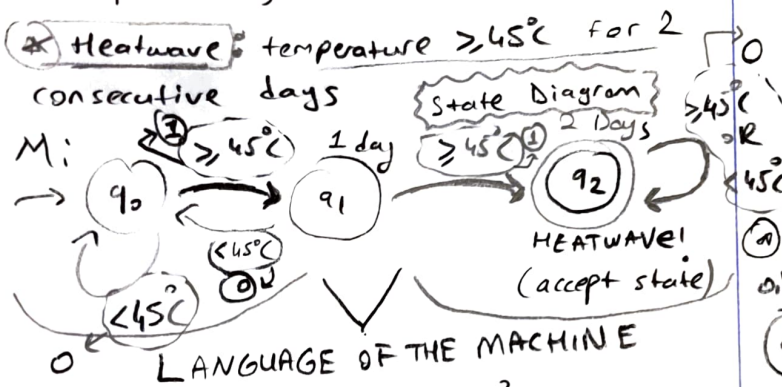 * Heatwave: temperature ≥45°C for 2
consecutive days
State Diagram
M:
1
≥45°C
1 day
≥45°C
1
2 Days
0
≥45°C
OR
<45°C
q0
q1
q2
<45°C
0
HEATWAVE!
(accept state)
<45°C
0
LANGUAGE OF THE MACHINE